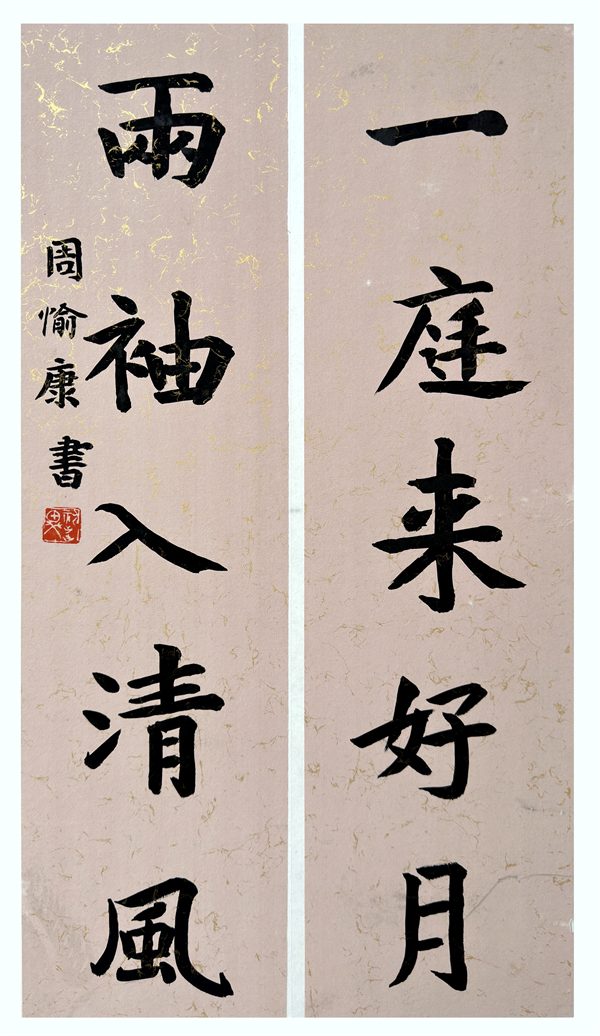 一庭来好月
兩袖入清風
周愉康書